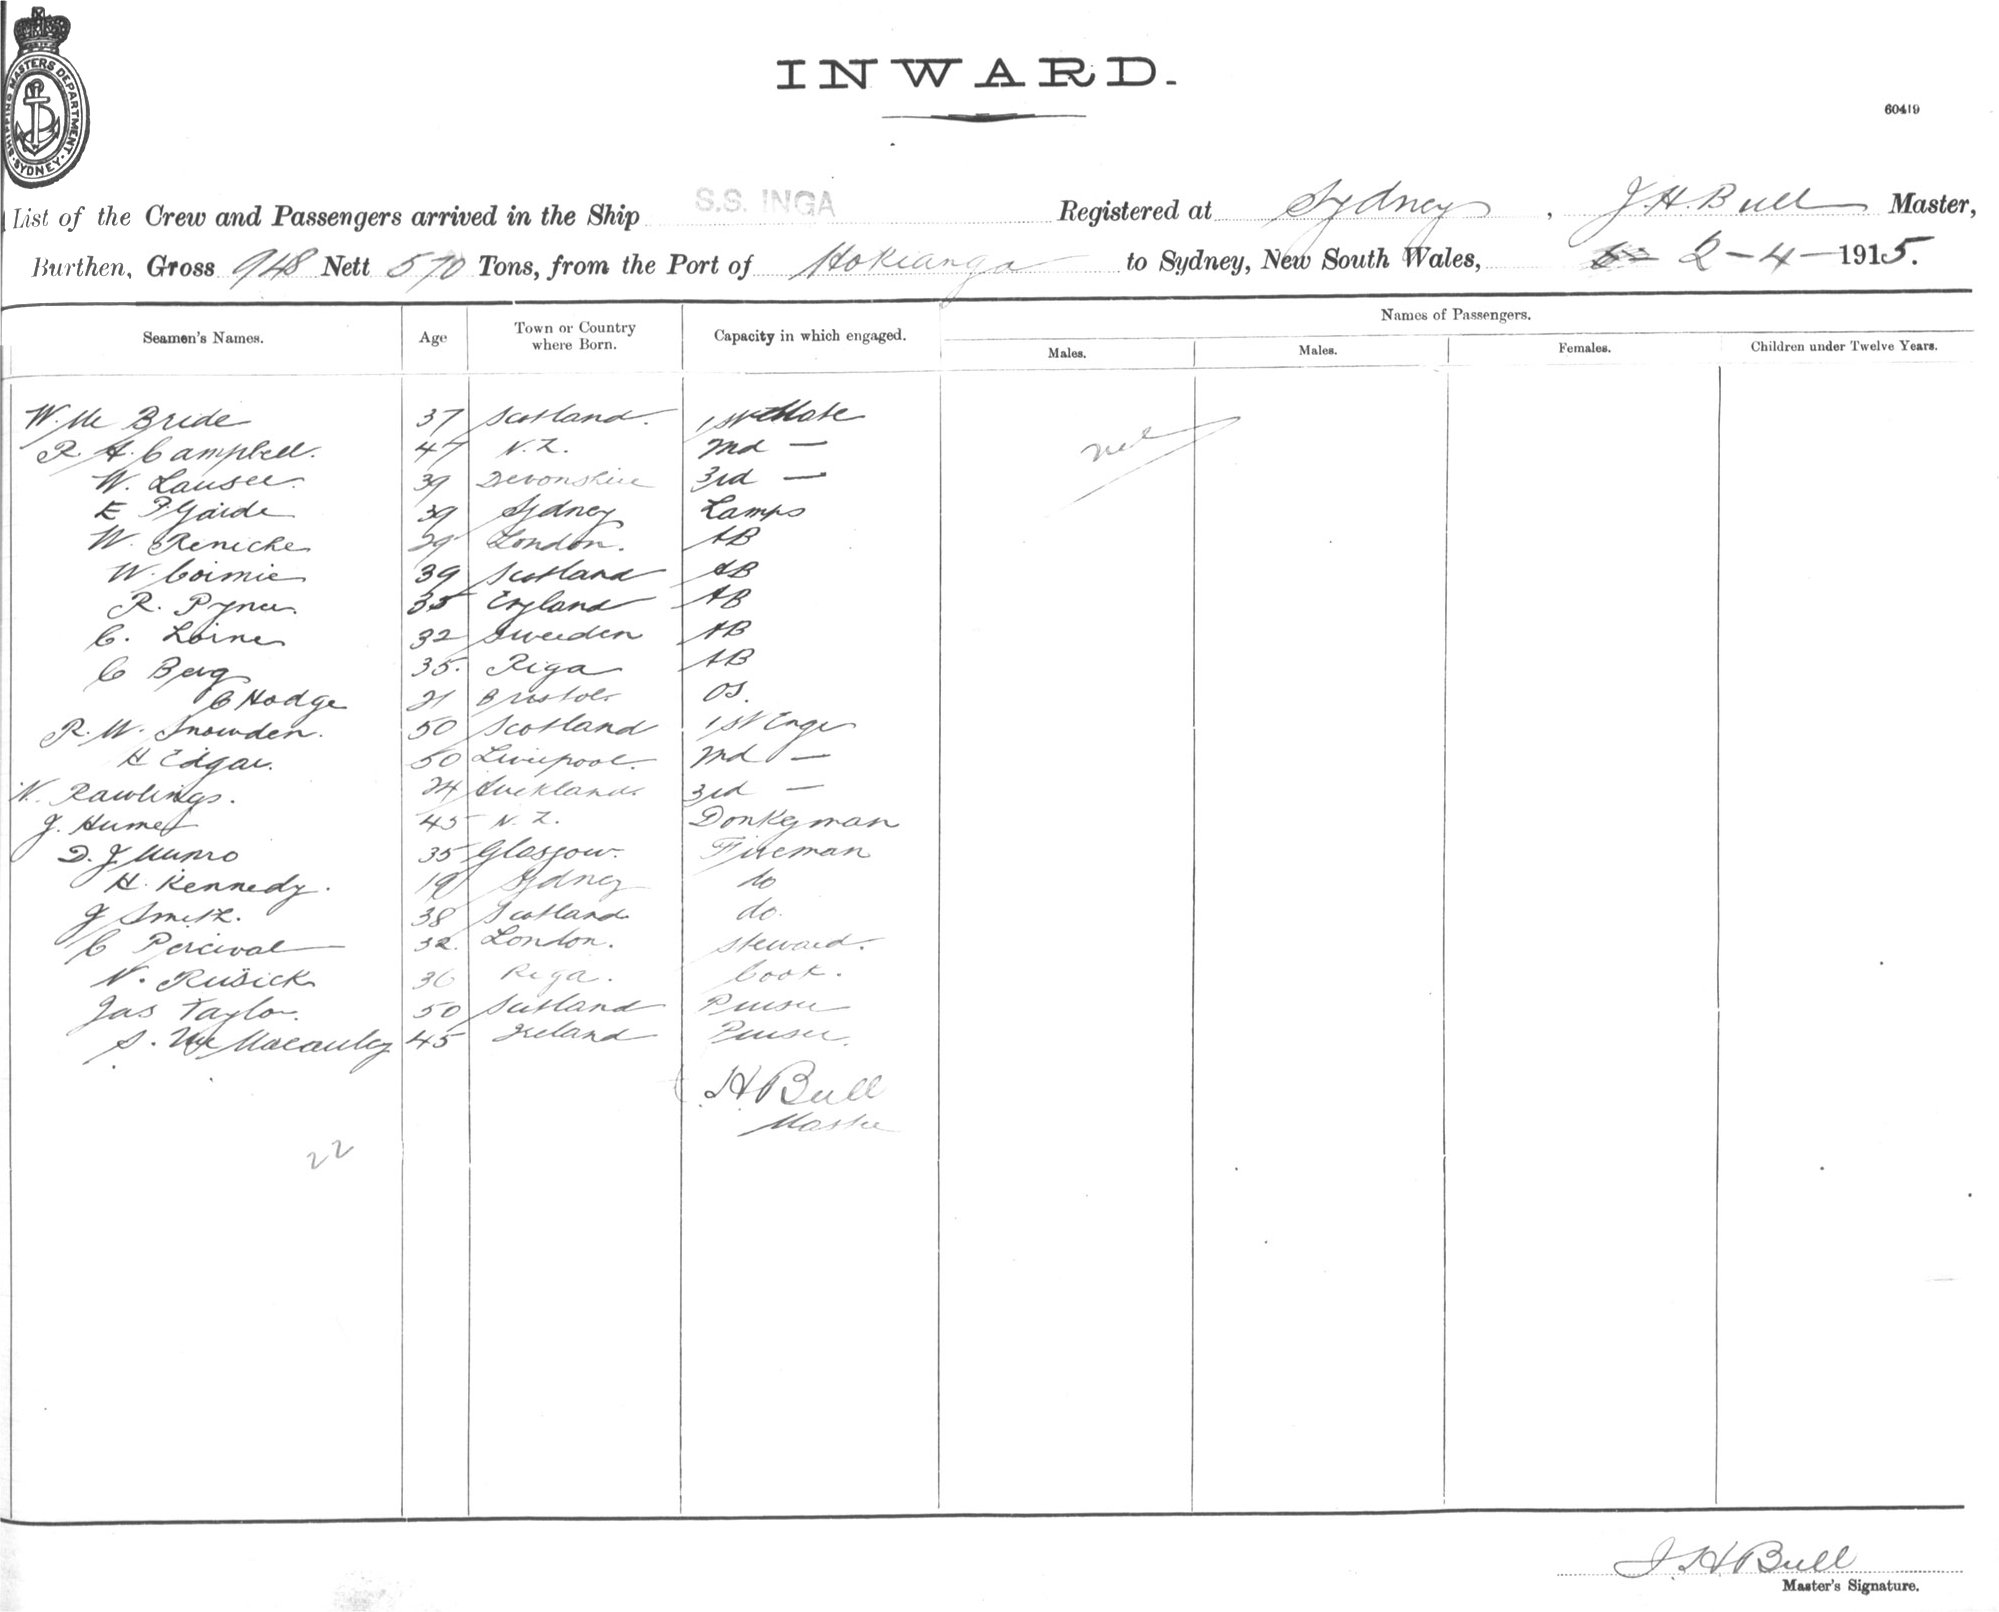 SHIPPING MASTERS DEPARTMENT. SYDNEY.
INWARD.
60419
List of the Crew and Passengers arrived in the Ship S.S. INGA Registered at Sydney, J.H. Bull Master,
Burthen, Gross 948 Nett 570 Tons, from the Port of Hokianga to Sydney, New South Wales, 2-4-1915.
Seamen's Names. Age Town or Country where Born. Capacity in which engaged. Names of Passengers.
Males. Males. Females. Children under Twelve Years.
W. Mc Bride 37 Scotland. 1st Mate
R. A. Campbell. 47 N.Z. 2nd —
W. 39 Devonshire 3rd —
E 39 Sydney Lamps
W. 29 London. AB
W. 39 Scotland AB
R. 35 England AB
C. 32 Sweeden AB
C Berg 35. Riga AB
C Hodge 21 Bristol OS.
R. W. Snowden. 50 Scotland 1st Engr
H Edgar. 50 Liverpool. 2nd —
N. Rawlings. 24 Auckland. 3rd —
J. Hume 45 N.Z. Donkeyman
D. J Munro 35 Glasgow. Fireman
H. Kennedy. 19 Sydney do
J Smith. 38 Scotland do.
C Percival 32. London. Steward.
N. Rusick 36 Riga. Cook.
Jas Taylor. 50 Scotland Purser
S. Macauley 45 Ireland Purser.
J.H Bull
Master
22
J.H Bull
Master's Signature.